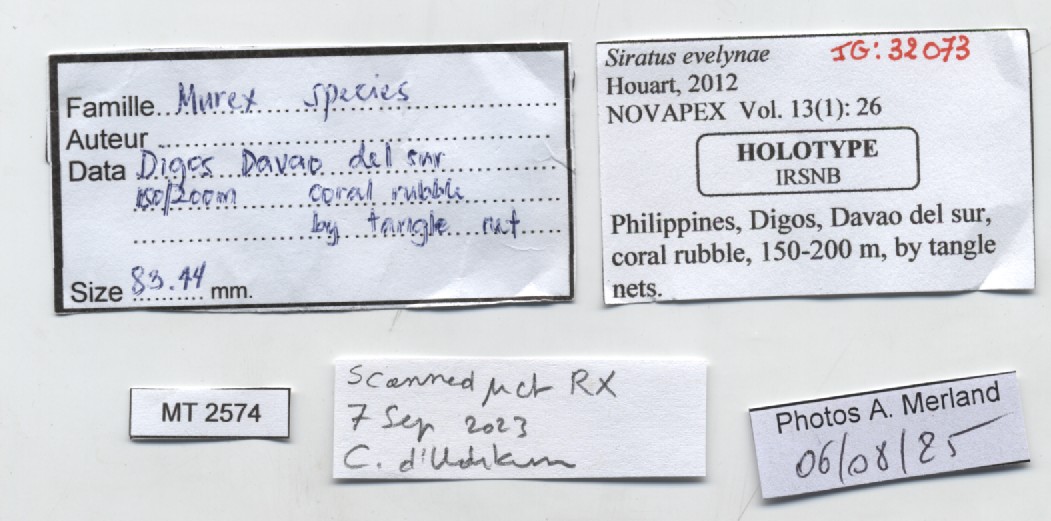 Famille Murex species
Auteur
Data Digos Davao del sur
150/200m coral rubble
by tangle net
Size 83.44 mm.
Siratus evelynae IG: 32073
Houart, 2012
NOVAPEX Vol. 13(1): 26
HOLOTYPE
IRSNB
Philippines, Digos, Davao del sur,
coral rubble, 150-200 m, by tangle
nets.
MT 2574
Scanned µct RX
7 Sep 2023
C.
Photos A. Merland
06/08/25